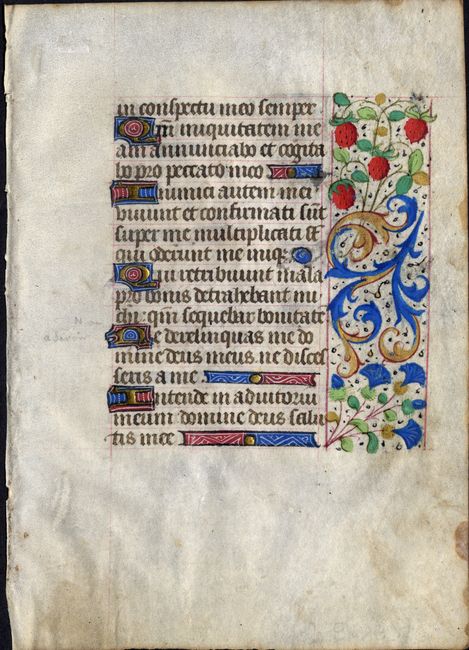 in conspectu meo semper
Qm̄ iniquitatem me
am annunciabo et cogita
bo pro peccato meo
Inimici autem mei
vivunt et confirmati sūt
super me multiplicati sūt
qui oderunt me iniq
Qui retribuunt mala
pro bonis detrahebant mi
chi: qm̄ sequebar bonitatē
Ne derelinquas me do
mine deus meus ne disces
seris a me
Intende in adiutoriū
meum domine deus salu
tis mee